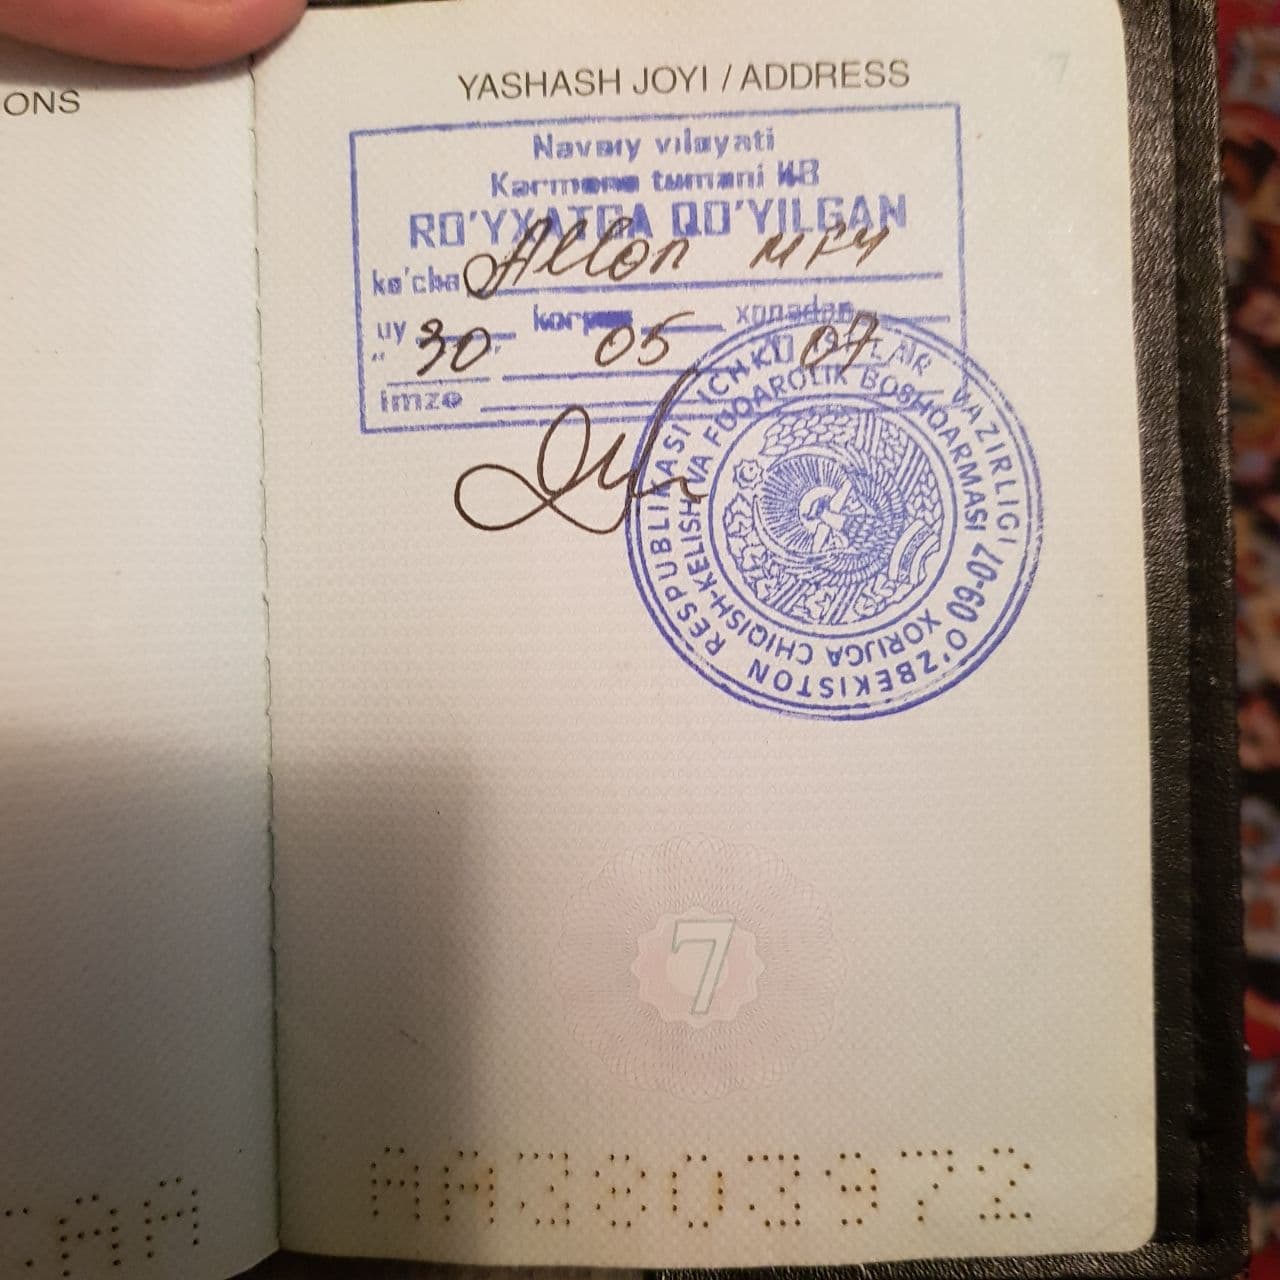 ONS
YASHASH JOYI / ADDRESS
7
Navoiy viloyati
Karmana tumani
RO'YXATGA QO'YILGAN
ko'cha MFY
uy korpus xonadon
30 05 07
imzo
O'ZBEKISTON RESPUBLIKASI ICHKI ISHLAR VAZIRLIGI 09-07
XORIJGA CHIQISH-KELISH VA FUQAROLIK BOSHQARMASI
7
AA3803972